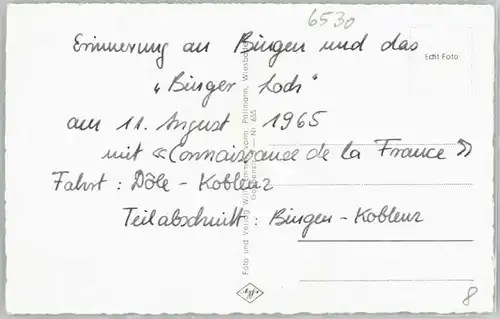 6530
Erinnerung an Bingen und das
Echt Foto
„Binger Loch"
am 11. August 1965
mit «Connaissance de la France»
Fahrt : Dôle - Koblenz
Teilabschnitt : Bingen - Koblenz
Foto und Verlag Pollmann, Wiesbaden
Nr. 655
8